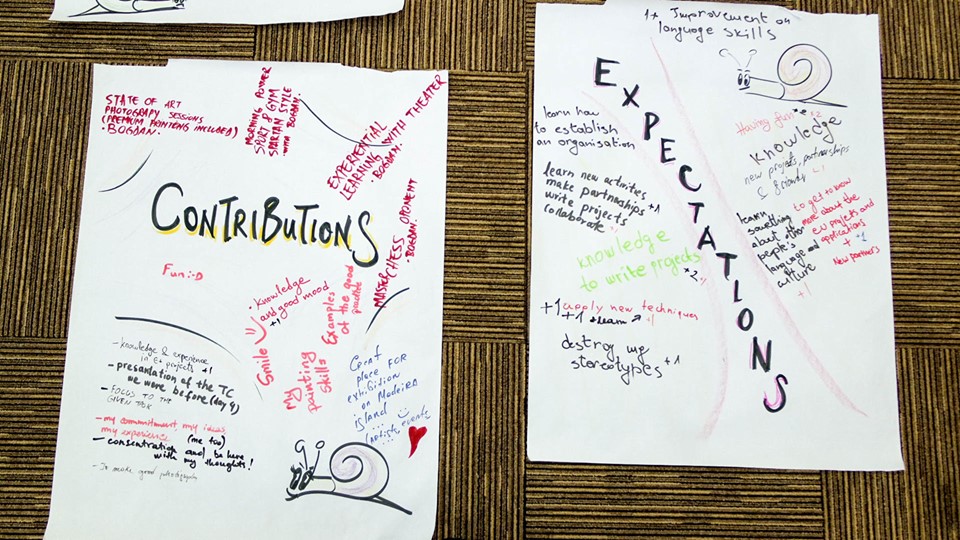 STATE OF ART
PHOTOGRAPY SESSIONS
(PREMIUM PRINTING INCLUDED)
• BOGDAN •
MORNING POWER
SPORT & GYM
SPARTAN STYLE
• WITH BOGDAN •
EXPERIENTIAL
LEARNING WITH THEATER
• BOGDAN •
MASTER CHESS OPONENT
• BOGDAN •
CONTRIBUTIONS
Fun :-D
• Knowledge
and good mood
+1
Smile
Examples
of the good
My
painting
skills
Great
place FOR
exhibision
on Madeira
island
(artists, events
- knowledge & experience
in E+ projects +1
- presantation of the TC
we were before (day 4)
- FOCUS TO THE
GIVEN TASK
- my commitment, my ideas,
my experience (me too)
- consentration and be here
with my thoughts!
- To make good
1+ Improvement on
language skills
EXPECTATIONS
learn how
to establish
an organisation
learn new activities
make partnerships +1
write projects
collaborate
knowledge
to write projects
*2
+1 apply new techniques
+1 +learn +1
destroy my
stereotypes +1
Having fun +2
knowledge
new projects, partnerships
& friends
learn
something
about the other
people's
language and
culture
+1
to get to know
more about the
EU projects and
applications
+ +1
New partners